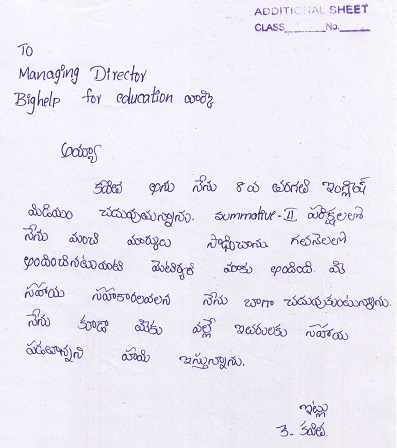 ADDITIONAL SHEET
CLASS______No.____
To
Managing Director
Bighelp for education వారికి
అయ్యా
కవిత అను నేను 8 వ తరగతి ఇంగ్లీష్
మీడియం చదువుతున్నాను. summative-II పరీక్షలలో
నేను మంచి మార్కులు సాధించాను గతనెలలో
అందించినటువంటి మెటీర్యల్ మాకు అందింది. మీ
సహాయ సహకారంవలన నేను బాగా చదువుకుంటున్నాను.
నేను కూడా మీకు వల్లే ఇతరులకు సహాయ
పడతానని హామి ఇస్తున్నాను.
ఇట్లు
కవిత